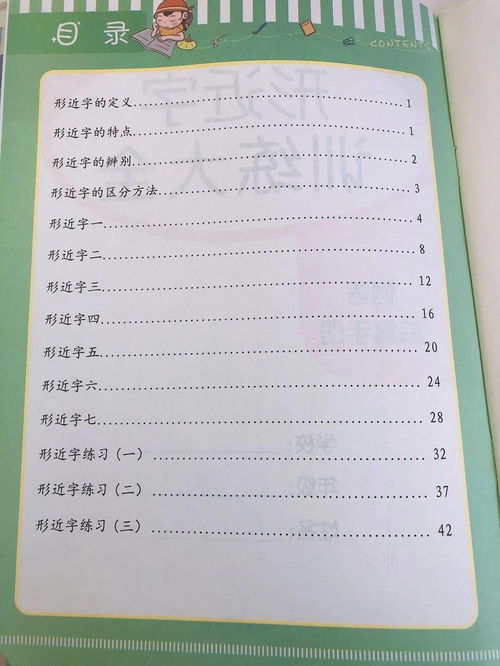 目录
CONTENTS
形近字的定义........................................1
形近字的特点........................................1
形近字的辨别........................................2
形近字的区分方法....................................3
形近字一............................................4
形近字二............................................8
形近字三............................................12
形近字四............................................16
形近字五............................................20
形近字六............................................24
形近字七............................................28
形近字练习（一）....................................32
形近字练习（二）....................................37
形近字练习（三）....................................42